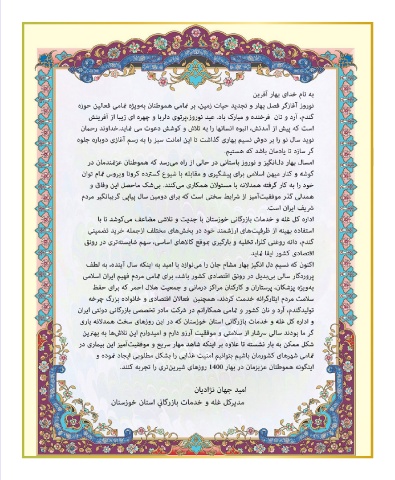 به نام خدای بهار آفرین
نوروز آغازگر فصل بهار و تجدید حیات زمین، بر تمامی هموطنان به‌ویژه تمامی فعالین حوزه
گندم، آرد و نان فرخنده و مبارک باد. عید نوروز،پرتوی دلربا و چهره ای زیبا از آفرینش
است که پیش از آمدنش، انبوه انسانها را به تلاش و کوشش دعوت می نماید.خداوند رحمان
نوید سال نو را بر دوش نسیم بهاری گذاشت تا این امانت سبز را به رسم آغازی دوباره جلوه
گر سازد تا یادمان باشد که هستیم
امسال بهار دل‌انگیز و نوروز باستانی در حالی از راه می‌رسد که هموطنان عزیزمان در
گوشه و کنار میهن اسلامی برای پیشگیری و مقابله با شیوع گسترده کرونا ویروس تمام توان
خود را به کار گرفته همدلانه با مسئولان همکاری می‌کنند. بی‌شک ماحصل این وفاق و
همدلی گذر موفقیت‌آمیز از شرایط سختی است که برای دومین سال پیاپی گریبانگیر مردم
شریف ایران است.
اداره کل غله و خدمات بازرگانی خوزستان با جدیت و تلاشی مضاعف می‌کوشد تا با
استفاده بهینه از ظرفیت‌های ارزشمند خود در بخش‌های مختلف ازجمله خرید تضمینی
گندم، دانه روغنی کلزا، تخلیه و بارگیری بموقع کالاهای اساسی، سهم شایسته‌تری در رونق
اقتصادی کشور ایفا نماید
اکنون که نسیم دل انگیز بهار مشام جان را می‌نوازد با امید به اینکه سال آینده، به لطف
پروردگار سالی بی‌بدیل در رونق اقتصادی کشور باشد، برای تمامی مردم فهیم ایران اسلامی
به‌ویژه پزشکان، پرستاران و کارکنان مراکز درمانی و جمعیت هلال احمر که برای حفظ
سلامت مردم ایثارگرانه خدمت کردند، همچنین فعالان اقتصادی و خانواده بزرگ چرخه
تولیدگندم، آرد و نان کشور و تمامی همکارانم در شرکت مادر تخصصی بازرگانی دولتی ایران
و اداره کل غله و خدمات بازرگانی استان خوزستان که در این روزهای سخت همدلانه یاری
گر ما بودند سالی سرشار از سلامتی و موفقیت آرزو دارم و امیدوارم این تلاش‌ها به بهترین
شکل ممکن به بار نشسته تا علاوه بر اینکه شاهد مهار سریع و موفقیت‌آمیز این بیماری در
تمامی شهرهای کشورمان باشیم بتوانیم امنیت غذایی را بشکل مطلوبی ایجاد نموده و
اینگونه هموطنان عزیزمان در بهار 1400 روزهای شیرین‌تری را تجربه کنند.
امید جهان نژادیان
مدیرکل غله و خدمات بازرگانی استان خوزستان